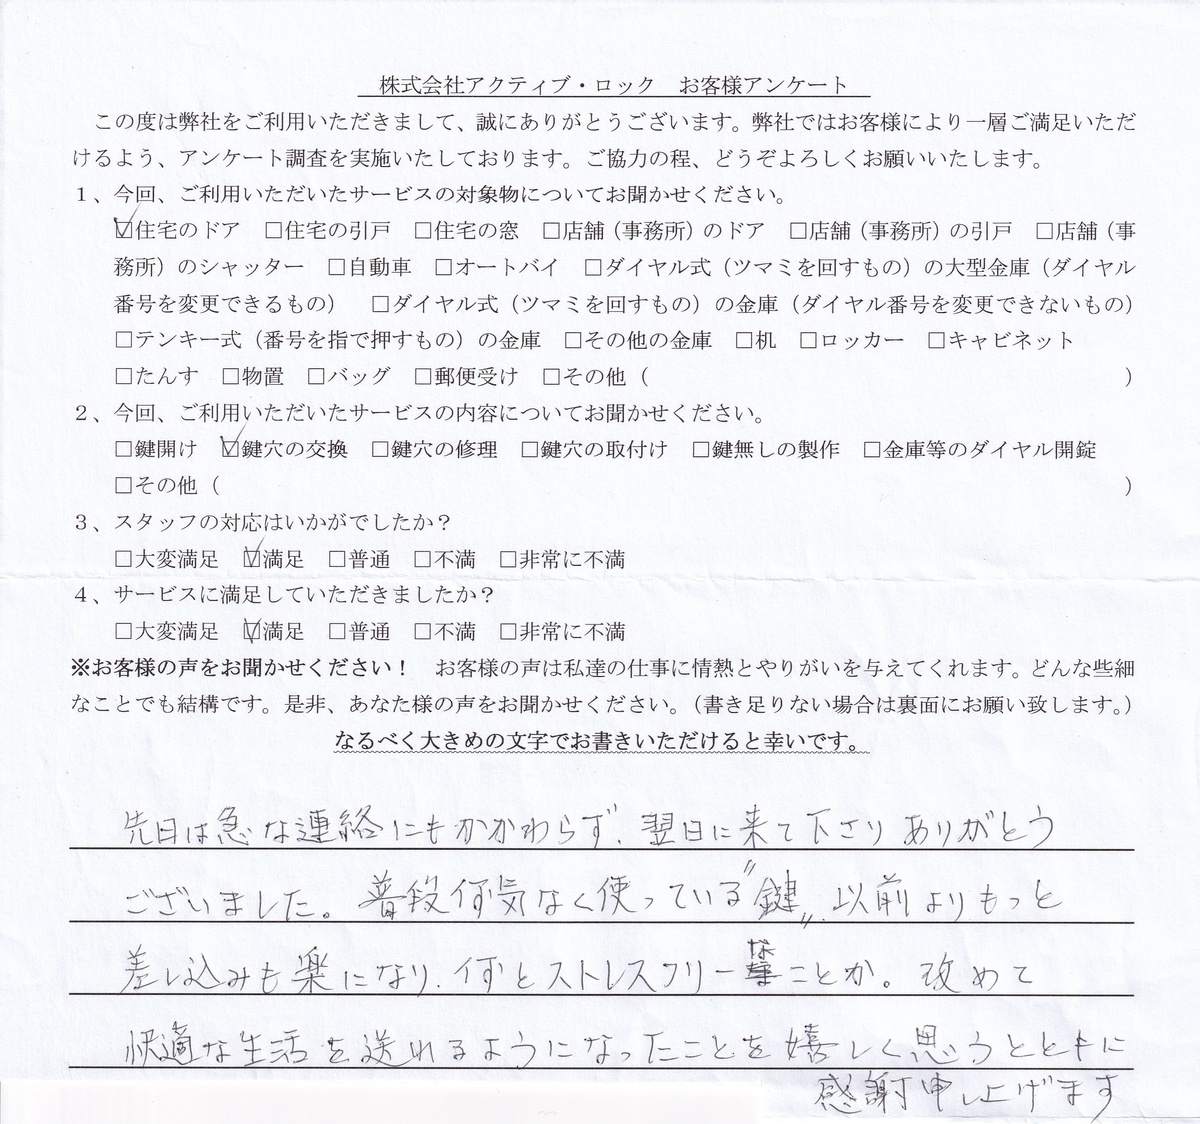 株式会社アクティブ・ロック　お客様アンケート
この度は弊社をご利用いただきまして、誠にありがとうございます。弊社ではお客様により一層ご満足いただ
けるよう、アンケート調査を実施いたしております。ご協力の程、どうぞよろしくお願いいたします。
１、今回、ご利用いただいたサービスの対象物についてお聞かせください。
☑住宅のドア　□住宅の引戸　□住宅の窓　□店舗（事務所）のドア　□店舗（事務所）の引戸　□店舗（事
務所）のシャッター　□自動車　□オートバイ　□ダイヤル式（ツマミを回すもの）の大型金庫（ダイヤル
番号を変更できるもの）　□ダイヤル式（ツマミを回すもの）の金庫（ダイヤル番号を変更できないもの）
□テンキー式（番号を指で押すもの）の金庫　□その他の金庫　□机　□ロッカー　□キャビネット
□たんす　□物置　□バッグ　□郵便受け　□その他（　　　　　）
２、今回、ご利用いただいたサービスの内容についてお聞かせください。
□鍵開け　☑鍵穴の交換　□鍵穴の修理　□鍵穴の取付け　□鍵無しの製作　□金庫等のダイヤル開錠
□その他（　　　　　）
３、スタッフの対応はいかがでしたか？
□大変満足　☑満足　□普通　□不満　□非常に不満
４、サービスに満足していただきましたか？
□大変満足　☑満足　□普通　□不満　□非常に不満
※お客様の声をお聞かせください！　お客様の声は私達の仕事に情熱とやりがいを与えてくれます。どんな些細
なことでも結構です。是非、あなた様の声をお聞かせください。（書き足りない場合は裏面にお願い致します。）
なるべく大きめの文字でお書きいただけると幸いです。
先日は急な連絡にもかかわらず、翌日に来て下さりありがとう
ございました。普段何気なく使っている〝鍵〟、以前よりもっと
差し込みも楽になり、何とストレスフリーなことか。改めて
快適な生活を送れるようになったことを嬉しく思うとともに
感謝申し上げます